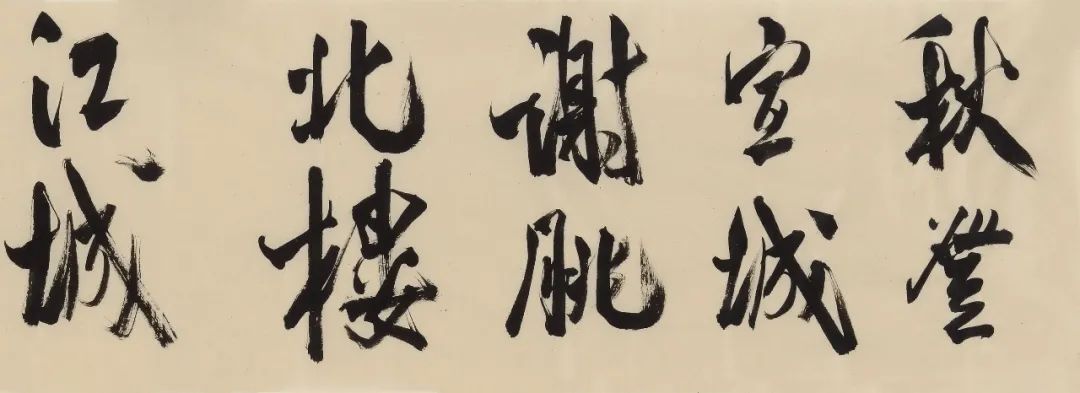 秋登
宣城
謝脁
北樓
江城